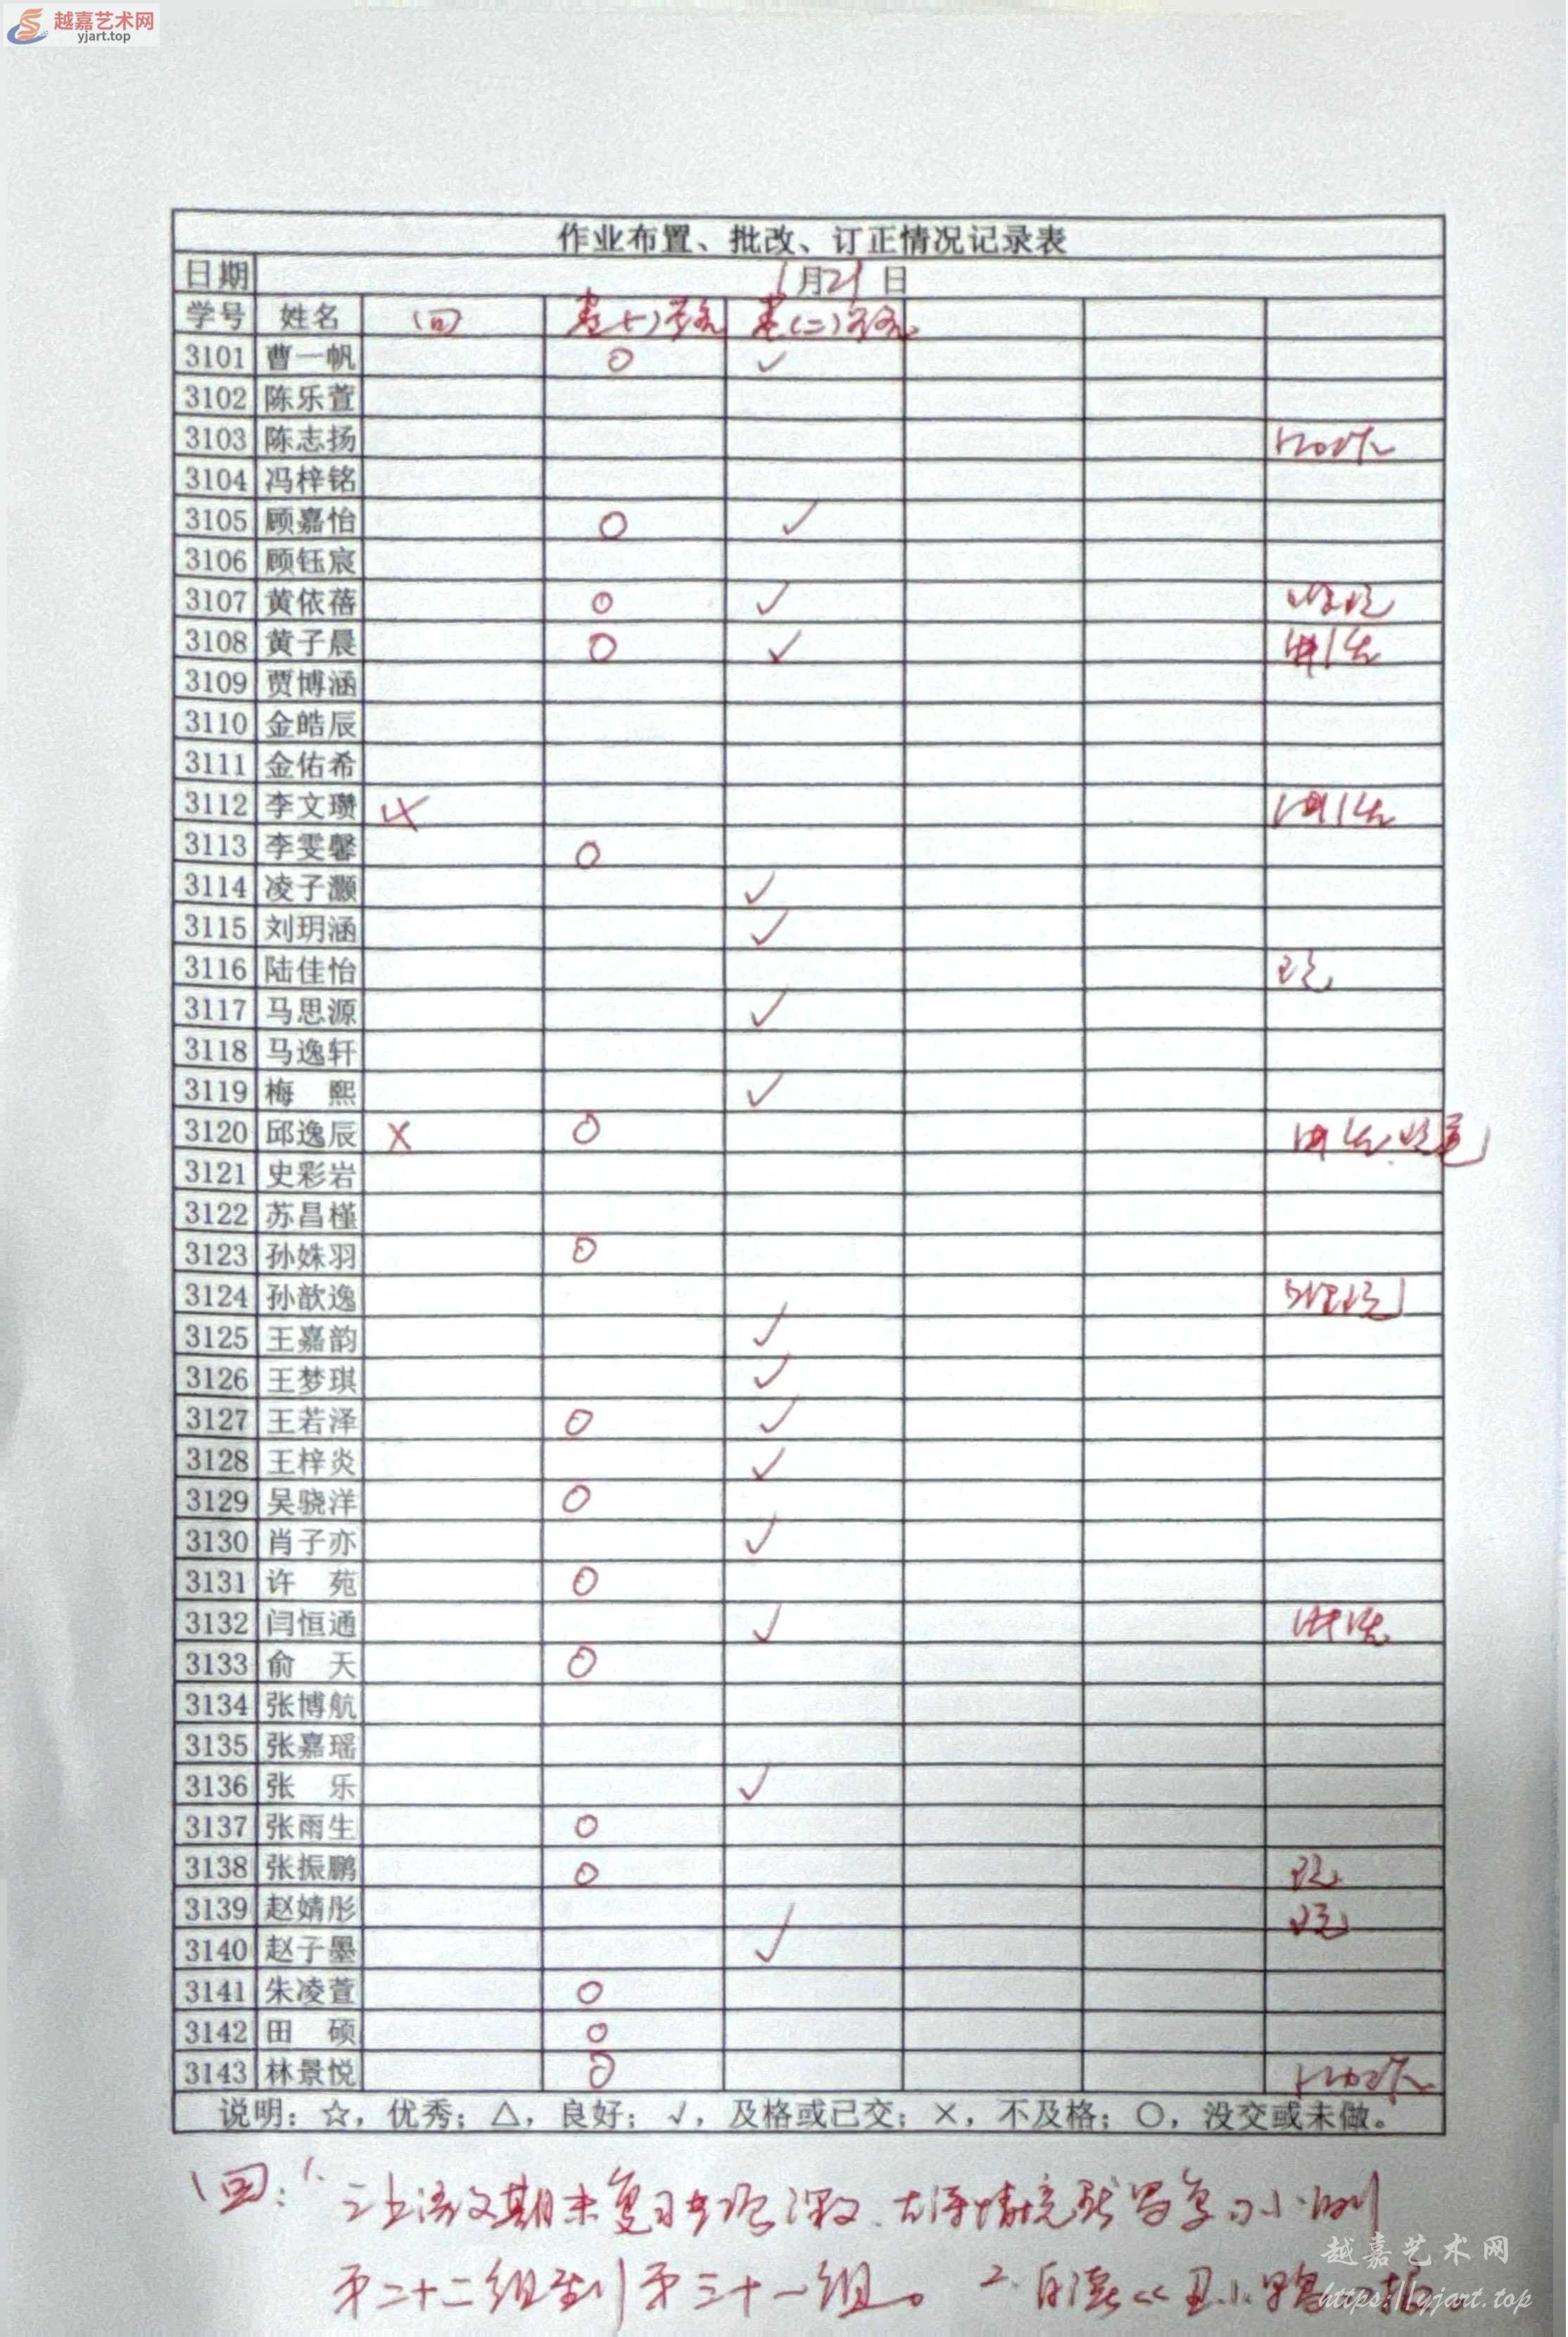 越嘉艺术网
yjart.top
作业布置、批改、订正情况记录表
日期 1月21日
学号 姓名 (回)
3101 曹一帆 ○ ✓
3102 陈乐萱
3103 陈志扬
3104 冯梓铭
3105 顾嘉怡 ○ ✓
3106 顾钰宸
3107 黄依蓓 ○ ✓
3108 黄子晨 ○ ✓
3109 贾博涵
3110 金皓辰
3111 金佑希
3112 李文瓒 ×
3113 李雯馨 ○
3114 凌子灏 ✓
3115 刘玥涵 ✓
3116 陆佳怡
3117 马思源 ✓
3118 马逸轩
3119 梅 熙 ✓
3120 邱逸辰 × ○
3121 史彩岩
3122 苏昌槿
3123 孙姝羽 ○
3124 孙歆逸
3125 王嘉韵 ✓
3126 王梦琪 ✓
3127 王若泽 ○ ✓
3128 王梓炎 ✓
3129 吴骁洋 ○
3130 肖子亦 ✓
3131 许 苑 ○
3132 闫恒通 ✓
3133 俞 天 ○
3134 张博航
3135 张嘉瑶
3136 张 乐 ✓
3137 张雨生 ○
3138 张振鹏 ○
3139 赵婧彤
3140 赵子墨 ✓
3141 朱凌萱 ○
3142 田 硕 ○
3143 林景悦 ○
说明：☆，优秀；△，良好；√，及格或已交；×，不及格；○，没交或未做。
回：1. 三上语文期末复习 情境 复习小
第二十二组到第三十一组。 2. 自读《丑小鸭
越嘉艺术网
https://yjart.top